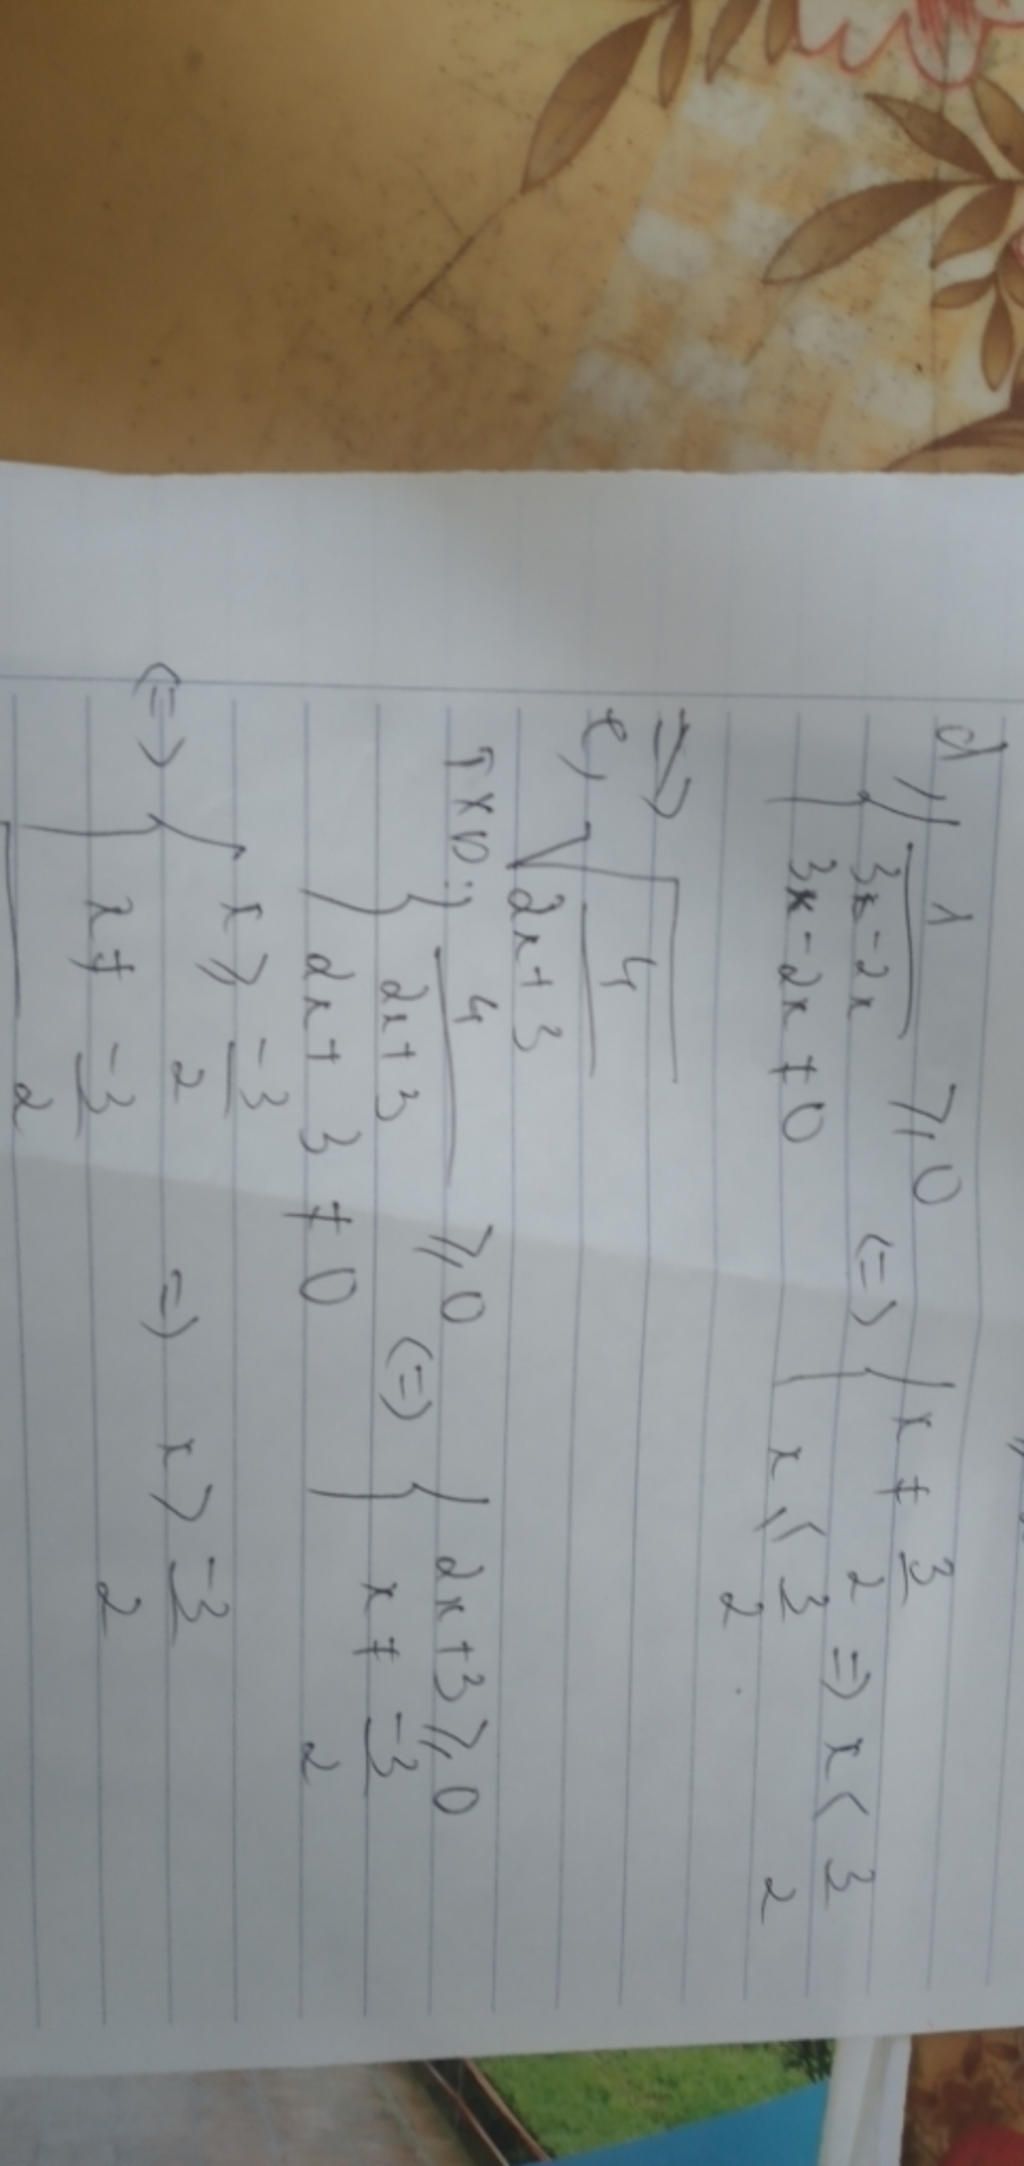 d, { 1/(3x-2x) ≥ 0 <=> { x ≠ 3/2 => x < 3/2
3x-2x ≠ 0 x ≤ 3/2
=>
e, √(4/(2x+3))
TXĐ: { 4/(2x+3) ≥ 0 <=> { 2x+3 ≥ 0
2x+3 ≠ 0 x ≠ -3/2
<=> { x ≥ -3/2 => x > -3/2
x ≠ -3/2